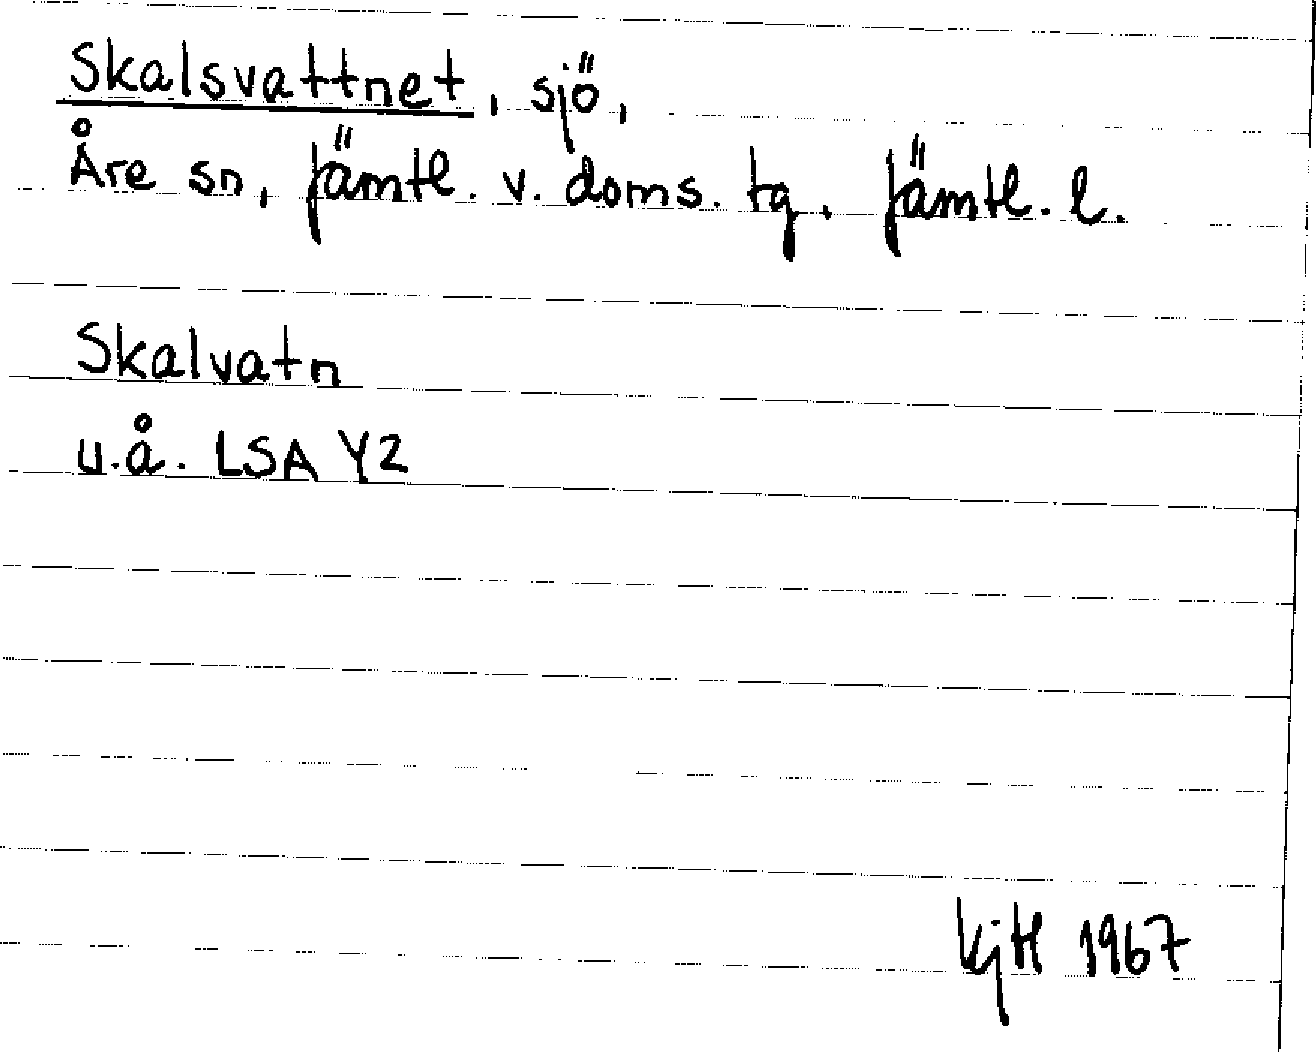 Skalsvattnet, sjö,
Åre sn, Jämtl. v. doms. tg, Jämtl. l.
Skalvatn
u.å. LSA Y2
1967